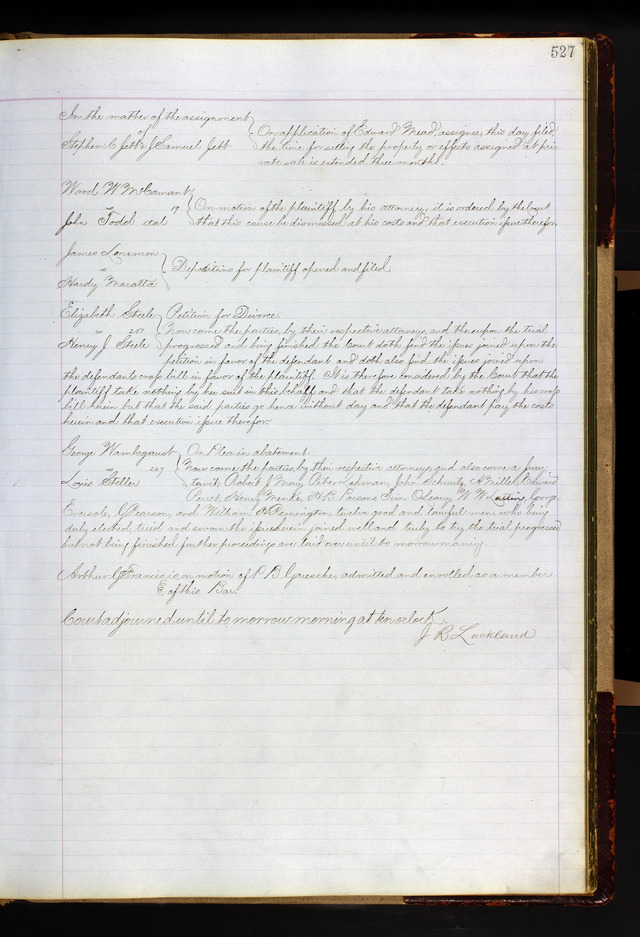 527
In the matter of the assignment
of
Stephen C Jett & J Samuel Jett
On application of Edward Mead, assignee, this day filed,
the time for selling the property or effects assigned at pri
vate sale is extended three months.
Wood W McCamant
vs 19
John Todd et al
On motion of the plaintiff by his attorney, it is ordered by the Court
that this cause be dismissed at his costs and that execution issue therefor.
James Lenemon
vs
Hardy Maratta
Depositions for plaintiff opened and filed.
Elizabeth Steele
vs 257
Henry J Steele
Petition for Divorce.
Now come the parties, by their respective attorneys, and thereupon the trial
progressed and being finished the Court doth find the issues joined upon the
petition in favor of the defendant and doth also find the issues joined upon
the defendants cross bill in favor of the plaintiff. It is therefore considered by the Court that the
plaintiff take nothing by her suit in this behalf and that the defendant take nothing by his cross
bill herein but that the said parties go hence without day and that the defendant pay the costs
herein and that execution issue therefor.
George Wambsganst
vs 247
Louis Steller
On Plea in abatement.
Now come the parties, by their respective attorneys, and also come a jury,
towit: Robert J May, Peter Lehman, John Schmitz, A Miller, Edward
Henry Menke, A B Parsons, O'Leary, W W George
Eversole, G Pearson, and William A Remington, twelve good and lawful men, who being
duly elected, tried and sworn the issue herein joined well and truly to try the trial progressed
but not being finished further proceedings are laid over until to morrow morning.
Arthur G Francis is, on motion of P B Garesche, admitted and enrolled as a member
of this Bar.
Court adjourned until to morrow morning at ten oclock.
J R Lackland